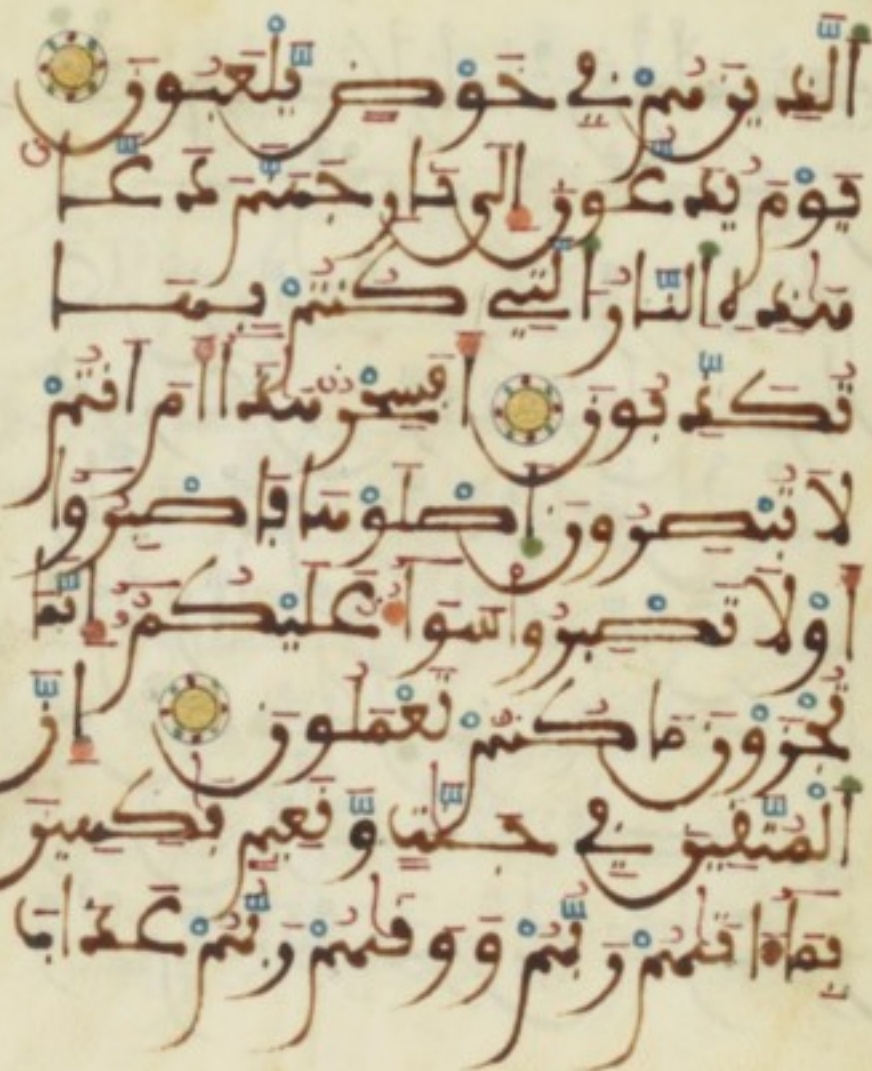 الذين هم في خوض يلعبون
يوم يدعون إلى نار جهنم دعا
هذه النار التي كنتم بها
تكذبون أفسحر هذا أم أنتم
لا تبصرون اصلوها فاصبروا
أو لا تصبروا سواء عليكم إنما
تجزون ما كنتم تعملون إن
المتقين في جنت ونعيم فكهين
بما ءاتيهم ربهم ووقيهم ربهم عذاب